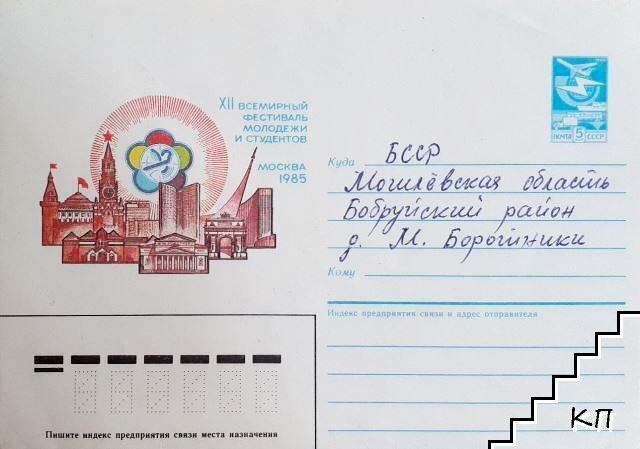 XII ВСЕМИРНЫЙ
ФЕСТИВАЛЬ
МОЛОДЕЖИ
И СТУДЕНТОВ
МОСКВА
1985
ПОЧТА 5 СССР
Куда БССР
Могилёвская область
Бобруйский район
д. М. Боротники
Кому
Индекс предприятия связи и адрес отправителя
Пишите индекс предприятия связи места назначения
КП